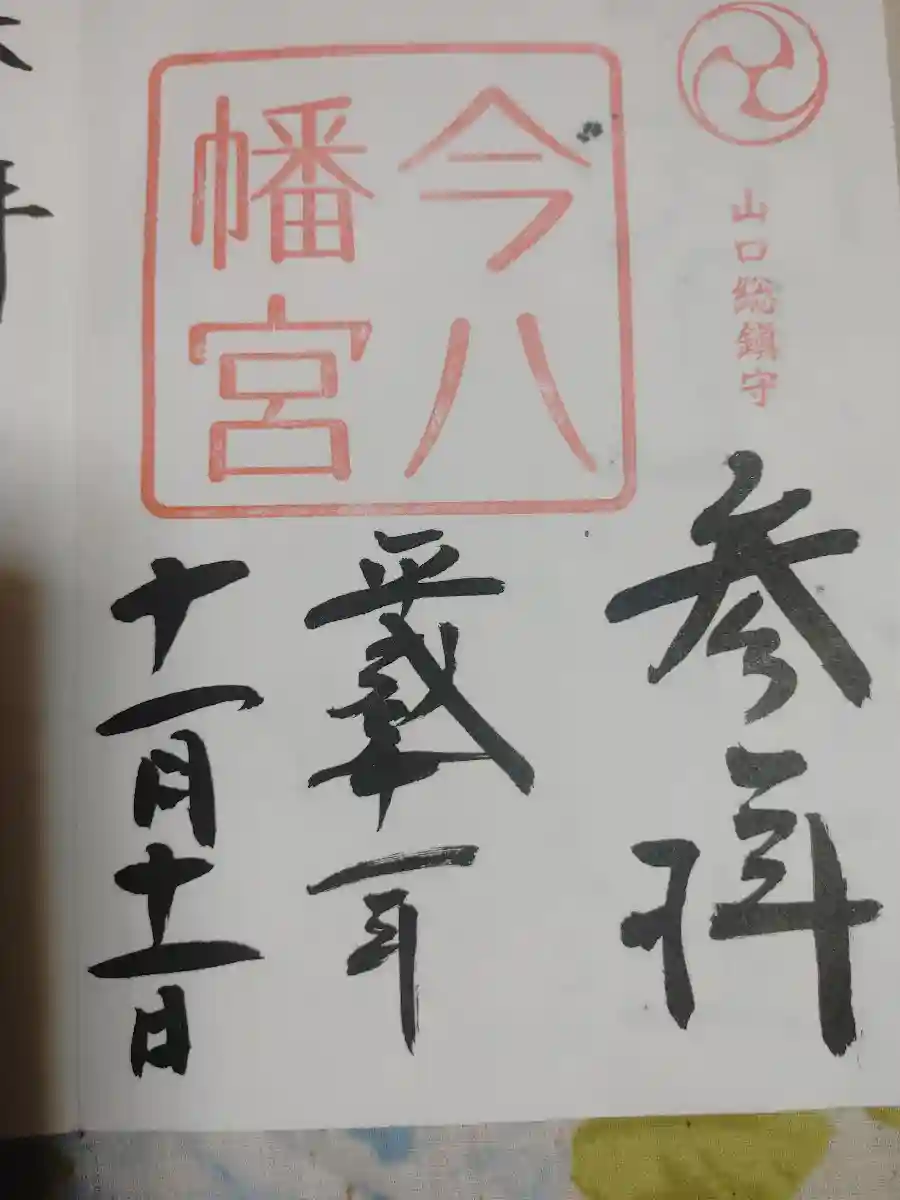 山口総鎭守
参拝
今八
幡宮
平成二十一年
十一月十一日
年